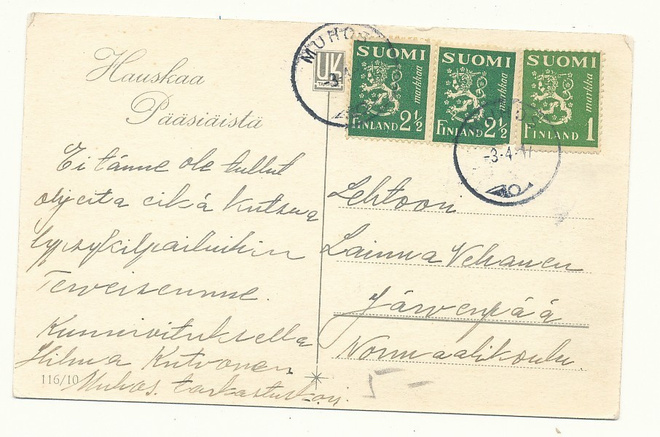 Hauskaa
Pääsiäistä
Ei tänne ole tullut
ohjeita eikä kutsua
lypsykilpailuihin
Terveisemme.
Kunnioituksella
Hilma Kutvonen
Muhos. tarkastuskoi.
116/10
MUHOS
-3.4
UK
SUOMI
markkaa
FINLAND 2½
SUOMI
markkaa
FINLAND 2½
SUOMI
markka
FINLAND 1
-3.4.47
Lehtoori
Laina Vehanen
Järvenpää
Normaalikoulu.